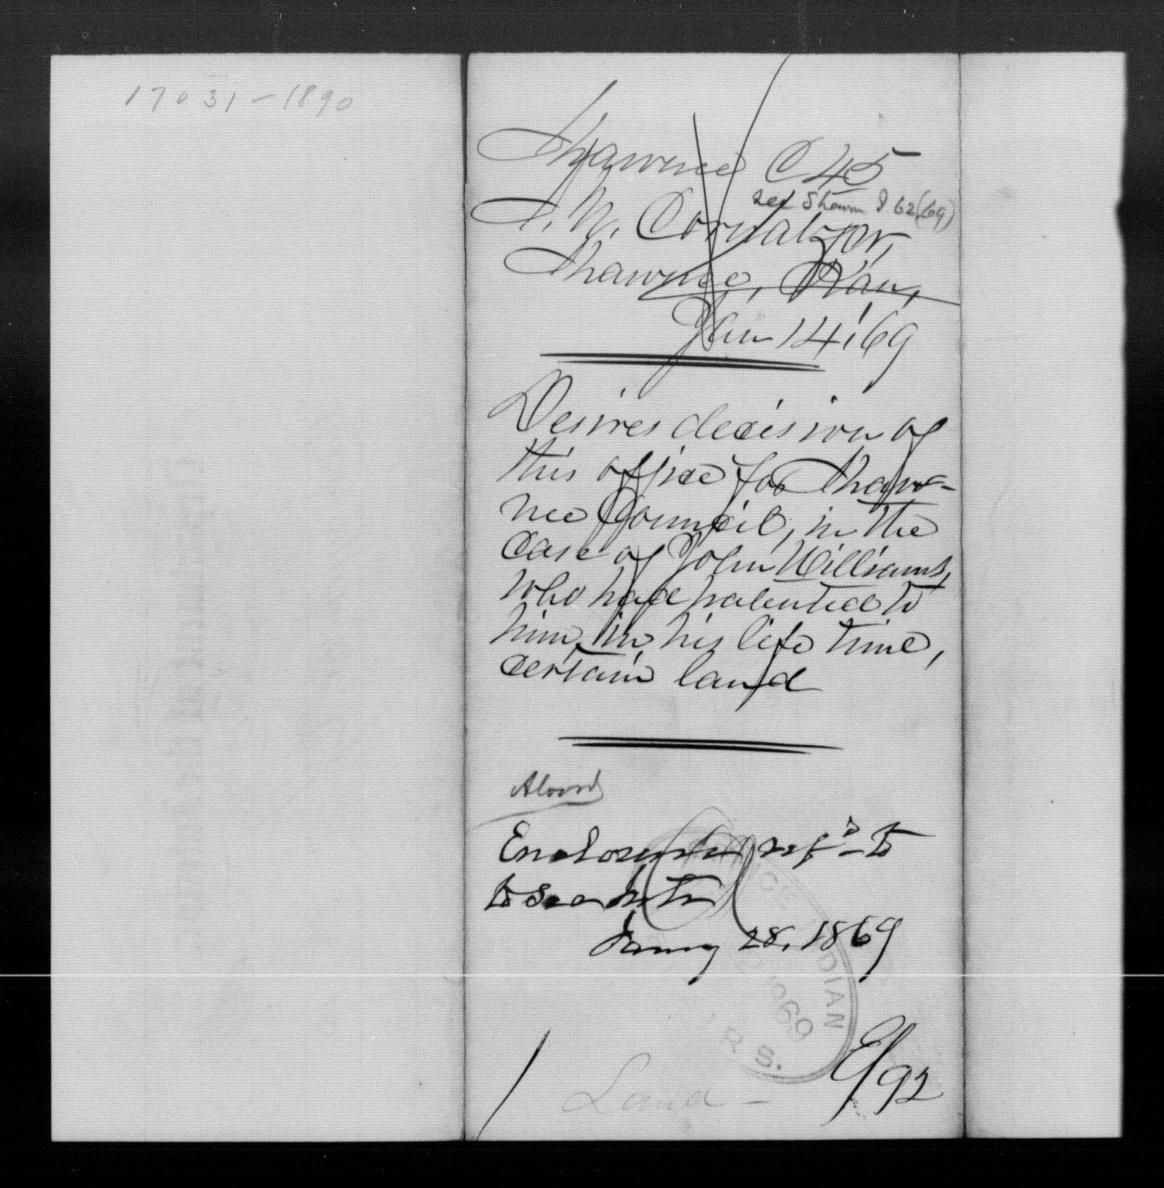 17031-1890
Shawnee C 45
see Shawn I 62 (69)
S. M. Cornatzer,
Shawnee, Kan,
Jan 14, 69
Desires decision of
this office for Shaw-
nee Council, in the
case of John Williams,
who had patented to
him, in his life time,
certain land
Enclosure
to Secretary
Jany 28, 1869
OFFICE INDIAN
1869
RS.
Land -
E/92